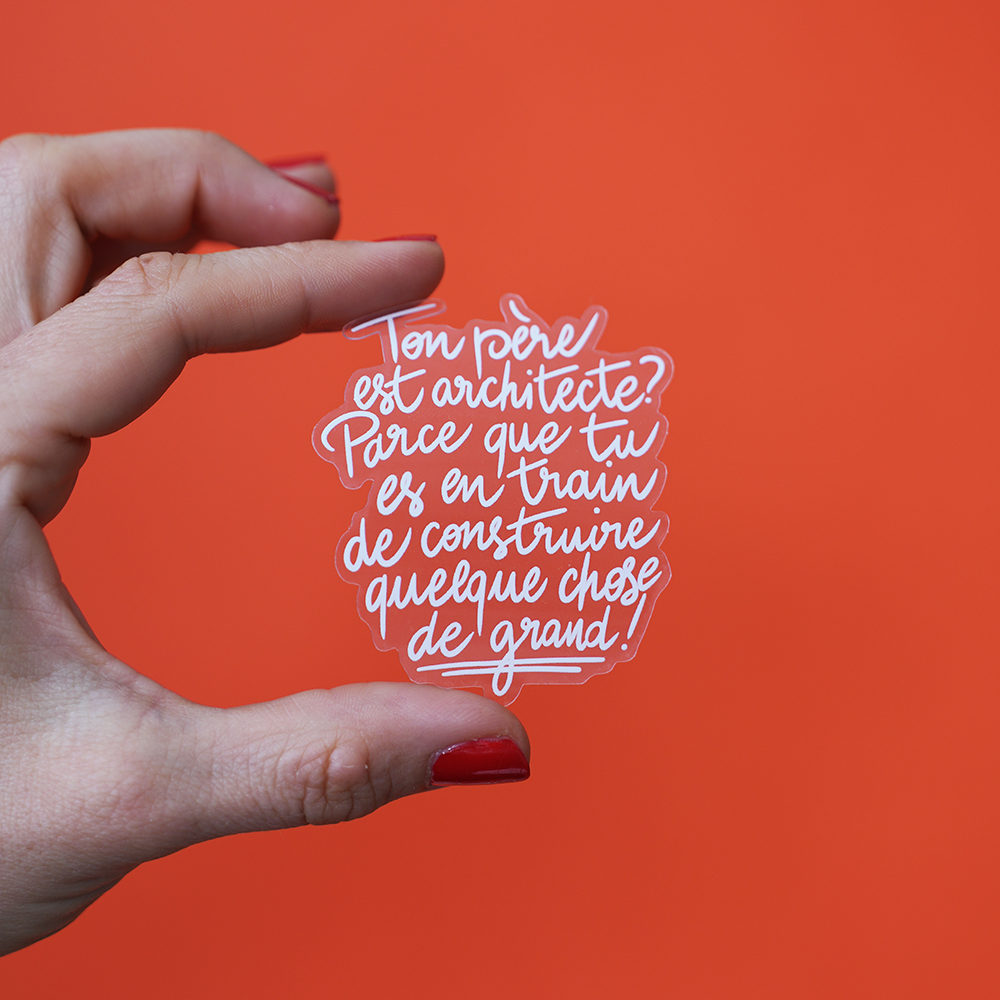 Ton père
est architecte?
Parce que tu
es en train
de construire
quelque chose
de grand!